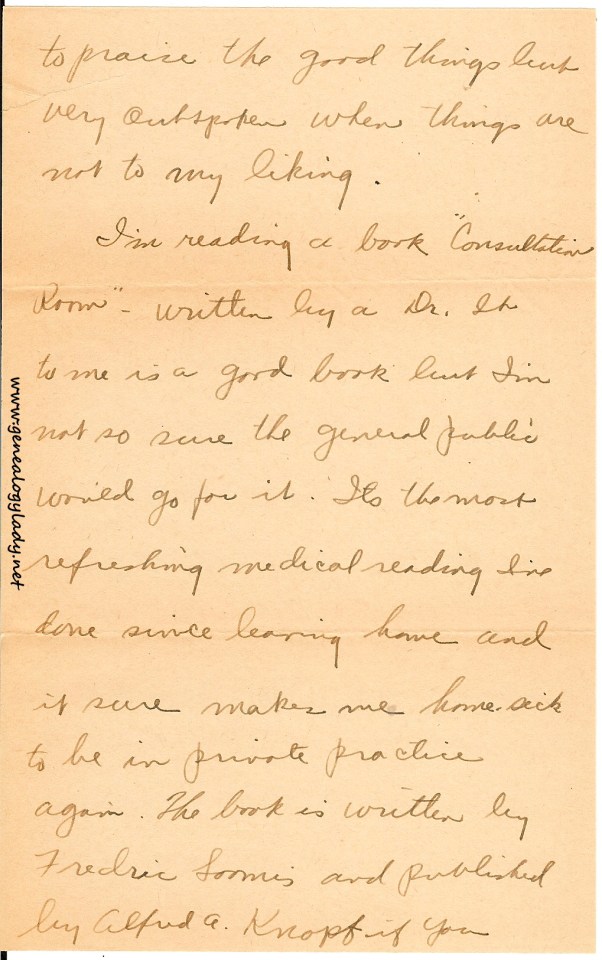 to praise the good things but
very outspoken when things are
not to my liking.
I'm reading a book "Consultation
Room" - written by a Dr. It
to me is a good book but I'm
not so sure the general public
would go for it. Its the most
refreshing medical reading I've
done since leaving home and
it sure makes me home-sick
to be in private practice
again. The book is written by
Fredric Loomis and published
by Alfred A. Knopf if you
www.genealogylady.net